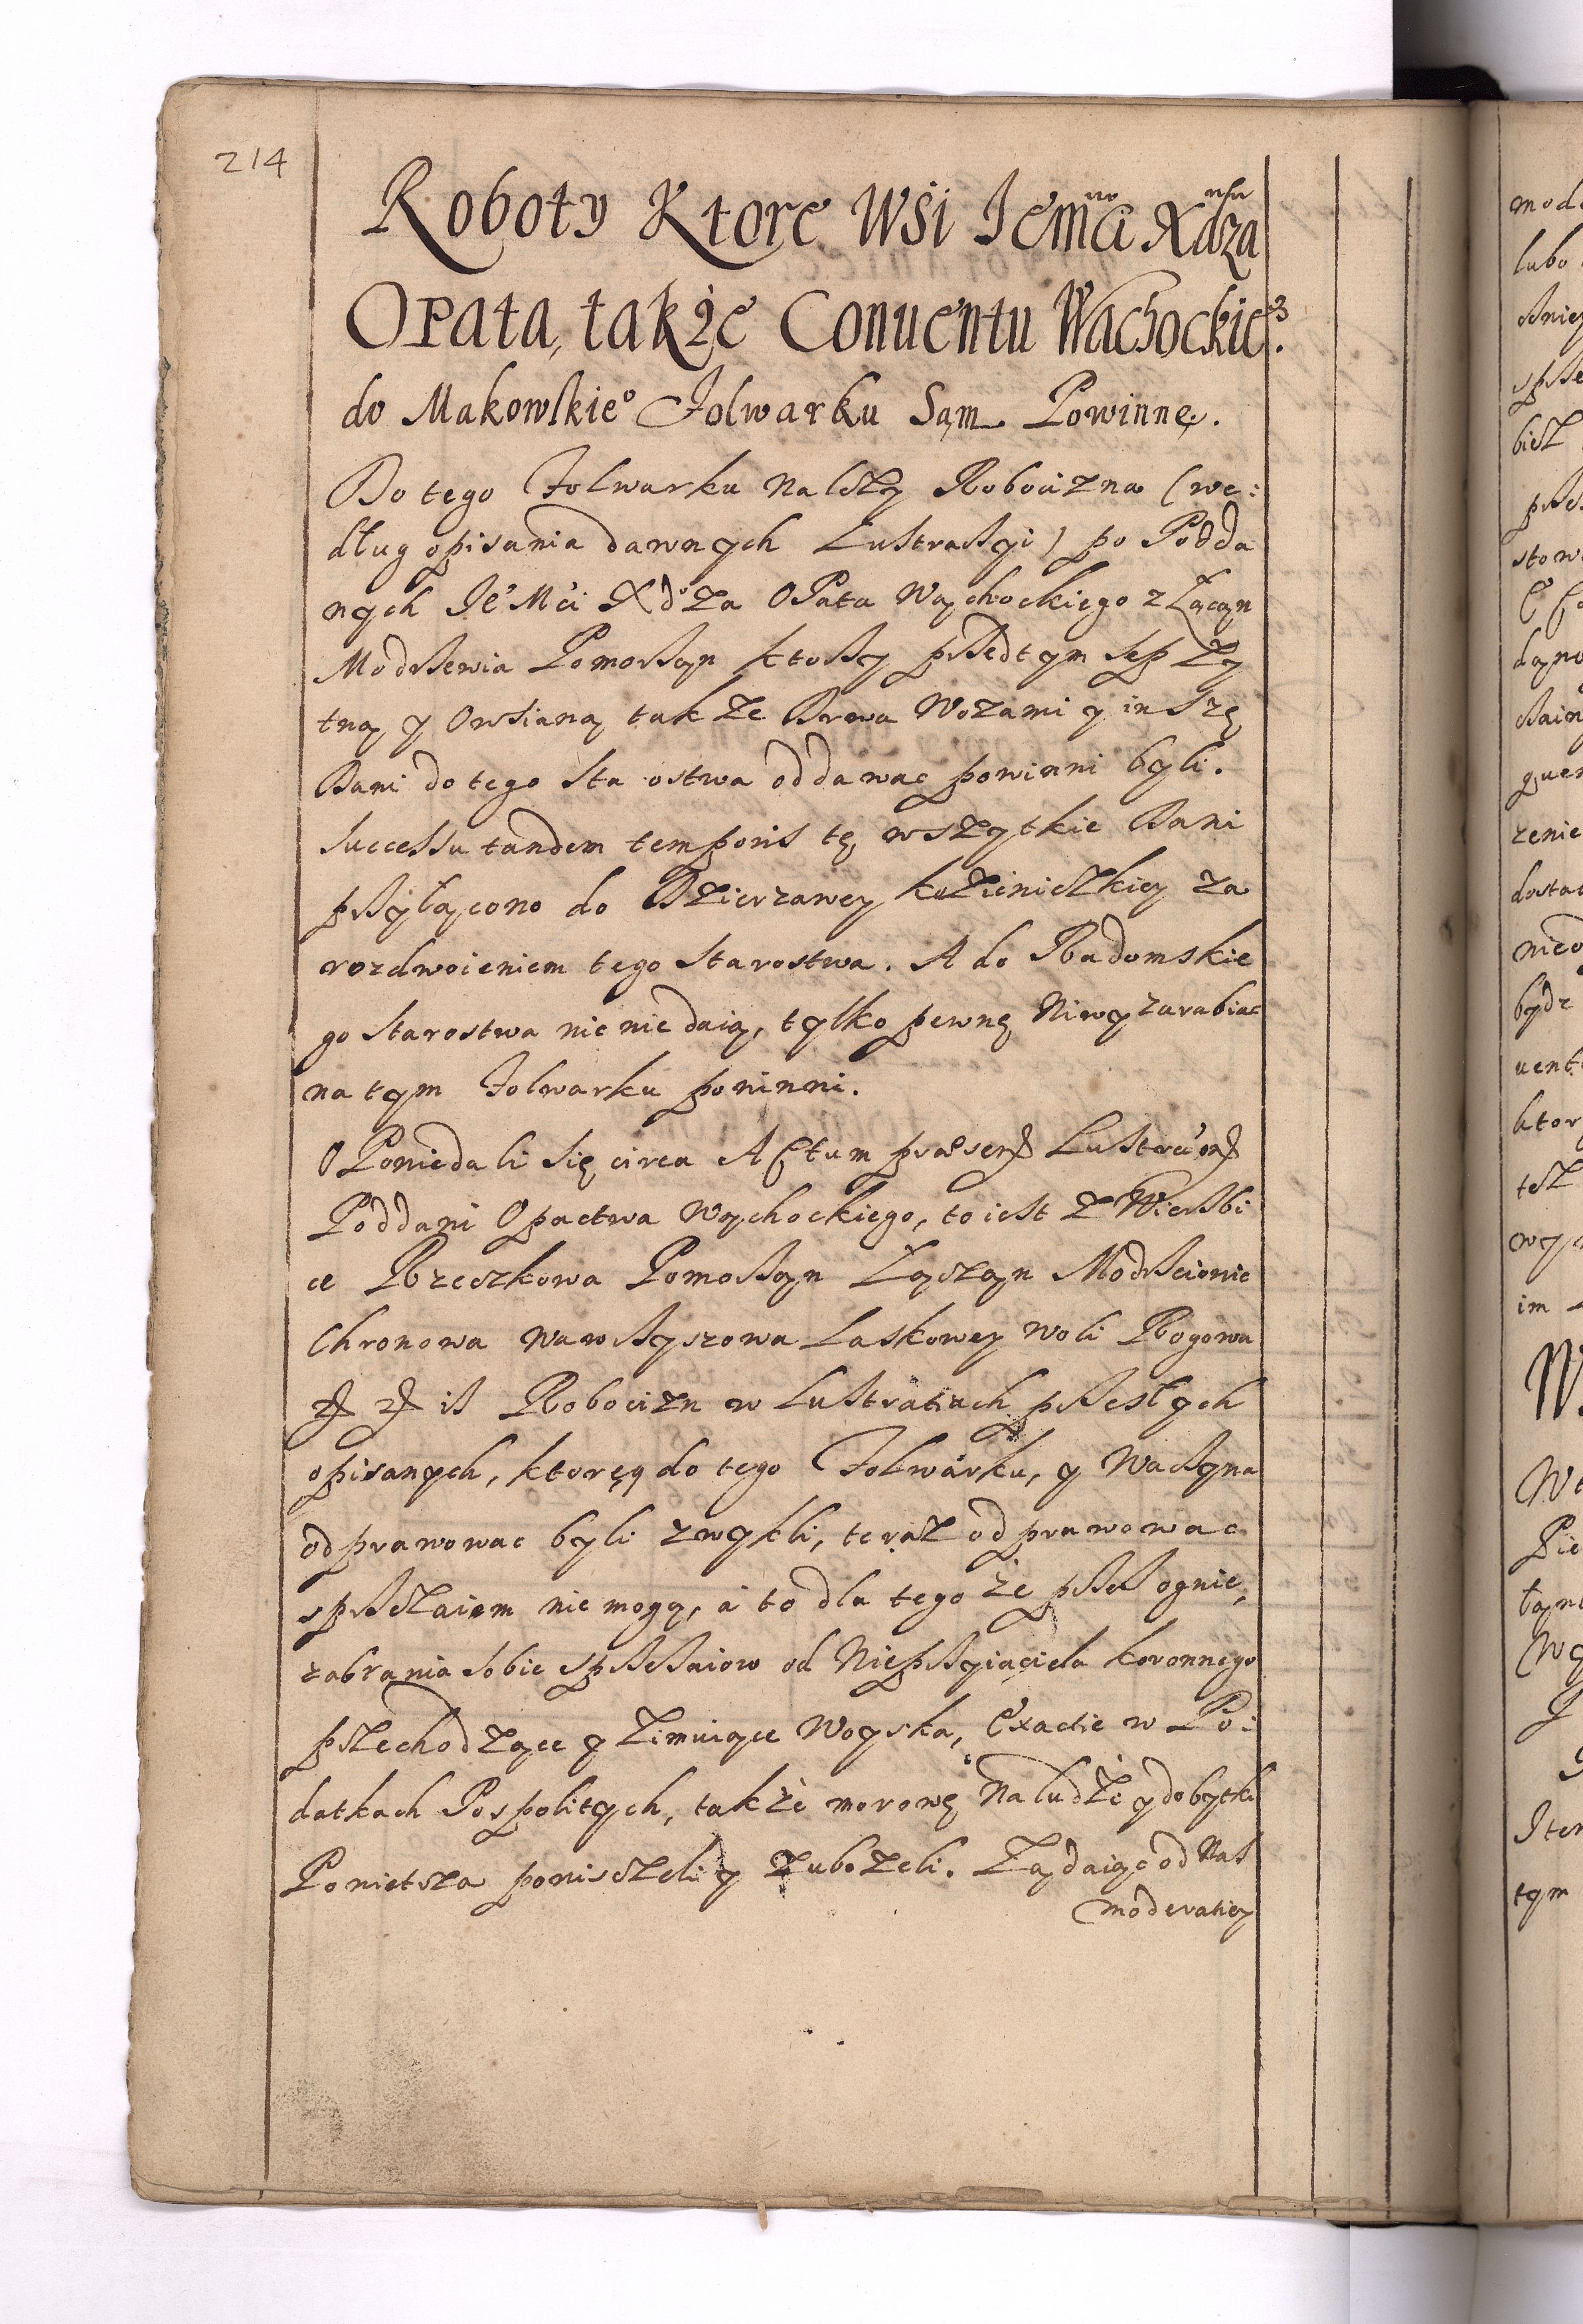 214
Roboty Ktore Wśi Jemći Xdza
Opata, także Conuentu Wachockie°.
do Makowskie° Folwarku Sąm Powinnę.
Do tego Folwarku Nalezy Robocizna (we:
dług opisania dawnych LustraRyi) po Podda
nych Je Mći Xdza OPata Wąchockiego z Łącan
ModRewia PomoRan ktoRy pRedtym sep Zy
tną y Owsianą takze Drwa Wozami y inszę
Dani do tego Sta ostwa oddawac powinni byli.
Successu tandem temporis tę wszytkie Dani
pRyłącono do Dzierzawey kozienickiey za
rozdwoieniem tego Starostwa. A do Radomskie
go Starostwa nic nie daią, tylko pewnę Niwy zarabiac
na tym Folwarku powinni.
OPowiedali się circa Actum præsen Lustraon
Poddani Opactwa Wąchockiego, to iest z WierRbi
ce Rzeczkowa PomoRan Łączan ModRewie
Chronowa WawRyszowa Laskowey Woli Rogowa
iz Robocizn w Lustratiach pResłych
opisanych, ktoręy do tego Folwarku, y WaRyna
odprawowac byli zwykli, teraz odprawowac
spRezaiem nie mogą, a to dla tego że pRez ognie,
zabrania sobie spReRaiow od NiepRyiaciela koronnego
przechodzące y zimuiące Woyska, Exactie w Po:
datkach Pospolitych, także morowę Na ludzie y dobytki
Powietsza poniszczeli y zubozeli. Ządaiąc od Nas
moderatiey